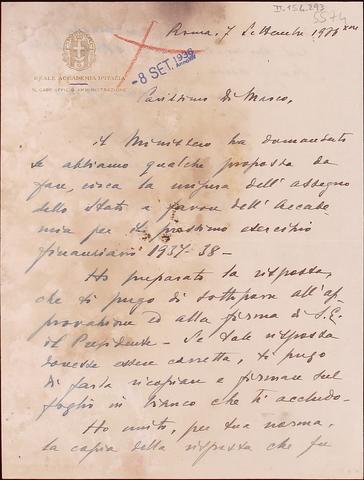 II.15.4.293
Roma, 7 Settembre 1936 XIV
-8 SET. 1936
REALE ACCADEMIA D'ITALIA
IL CAPO UFFICIO AMMINISTRAZIONE
Carissimo Di Marco,
il Ministero ha domandato
se abbiamo qualche proposta da
fare, circa la misura dell'assegno
dello Stato a favore dell'Accade-
mia per il prossimo esercizio
finanziario 1937-38-
Ho preparato la risposta,
che ti prego di sottoporre all'ap-
provazione ed alla firma di S.E.
il Presidente - Se tale risposta
dovesse essere corretta, ti prego
di farla ricopiare e firmare sul
foglio in bianco che ti accludo-
Ho unito, per tua norma,
la copia della risposta che fu